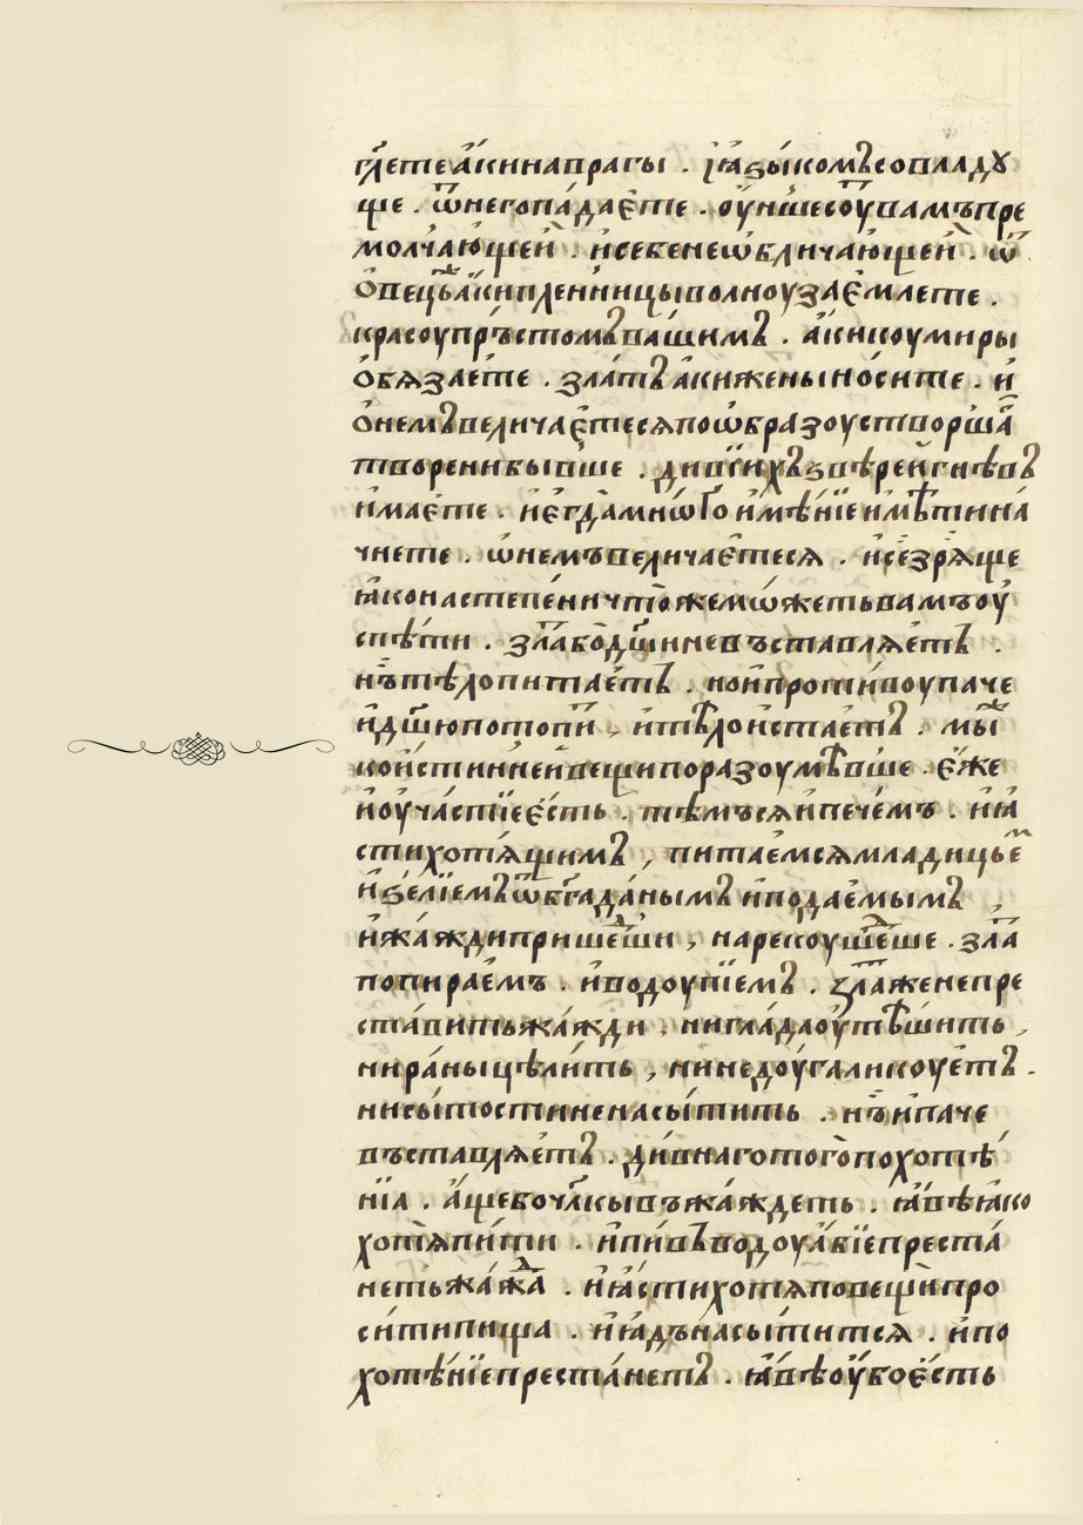 гл҃етеа҆́кинаврагы . ꙗ҆зы́комъсовладꙋ
ще . ѿнегопа́дае҆те . оу҆́ншесоу́тьвамъпре
молча́ющеи҆ . и҆себенеѡ҆бличаю́щеи҆ . ѿ
о҆вець꙽а҆́киплени́ницыволноуза́е҆млете .
красоупръстомъва́шимъ . а҆́кикоумиры
о҆бѧзае҆те . зла́тъа҆кижены́но́сите . и҆
о҆немъвелича́е҆тесѧпоѡ҆бразоустворша҆
творенибывше . ди́вїихъꙃвѣрейгнѣвъ
и҆мае҆те . и҆е҆гда̀мно́гои҆мѣ́нїеи҆мѣ́тина́
чнете . ѡ҆немъвеличае҆тесѧ . и҆сезрѧ́ще
ꙗ҆конастепе́ничто̀жемо́жетьвамъоу҆
спѣ́ти . злабодш҃иневъставлѧ́е҆тъ .
нъ̀тѣлопитае҆тъ . нои҆проти́воупаче
и҆дш҃юпотопи́ . и҆тѣлои҆стае҆тъ . мы́ж
кои҆́стиннеи҆вещипоразоумѣвше . е҆́же
и҆оу҆ча́стїее҆́сть . тѣмъсѧи҆печемъ . и҆ꙗ҆
стихотѧ́щимъ , питае҆мсѧмладицье҆м
и҆ꙃе́лїемъѿбг҃ада́нымъи҆подае҆мымъ
и҆жа́ждиприше́дши , нарекоуше́дше . зла́т
попирае҆мъ . и҆водоупїемъ . зла́тженепре
ста́витьжа́жди . нигла́даоу҆тѣ́шить ,
нира́ныцѣли́ть , нинедоу́галикоуе҆тъ .
нисы́тостиненасы́тить . нъ̀и҆паче
въставлѧе҆тъ . ди́внаготого̀похотѣ́
нїа . а҆́щебочл҃кывъжа́ждеть . ꙗ҆́вѣꙗ҆ко
хотѧ̀пи́ти . и҆пи́въводоуа҆́бїепреста́
нетьжа́жда . и҆ꙗ҆́стихотѧповещѝпро
си́типища . и҆ꙗ҆дъ́насы́титсѧ . и҆по
хотѣ́нїепреста́нетъ . ꙗ҆́вѣоу҆́бое҆́сть